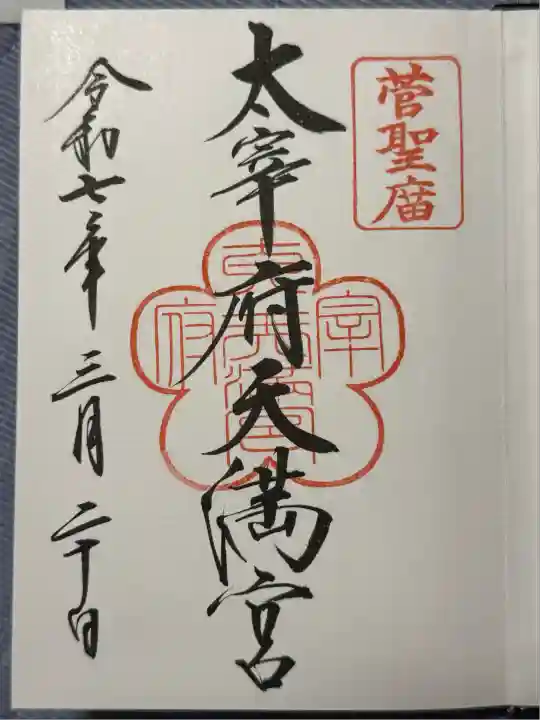 菅聖庿
太宰府天満宮
令和七年三月二十日